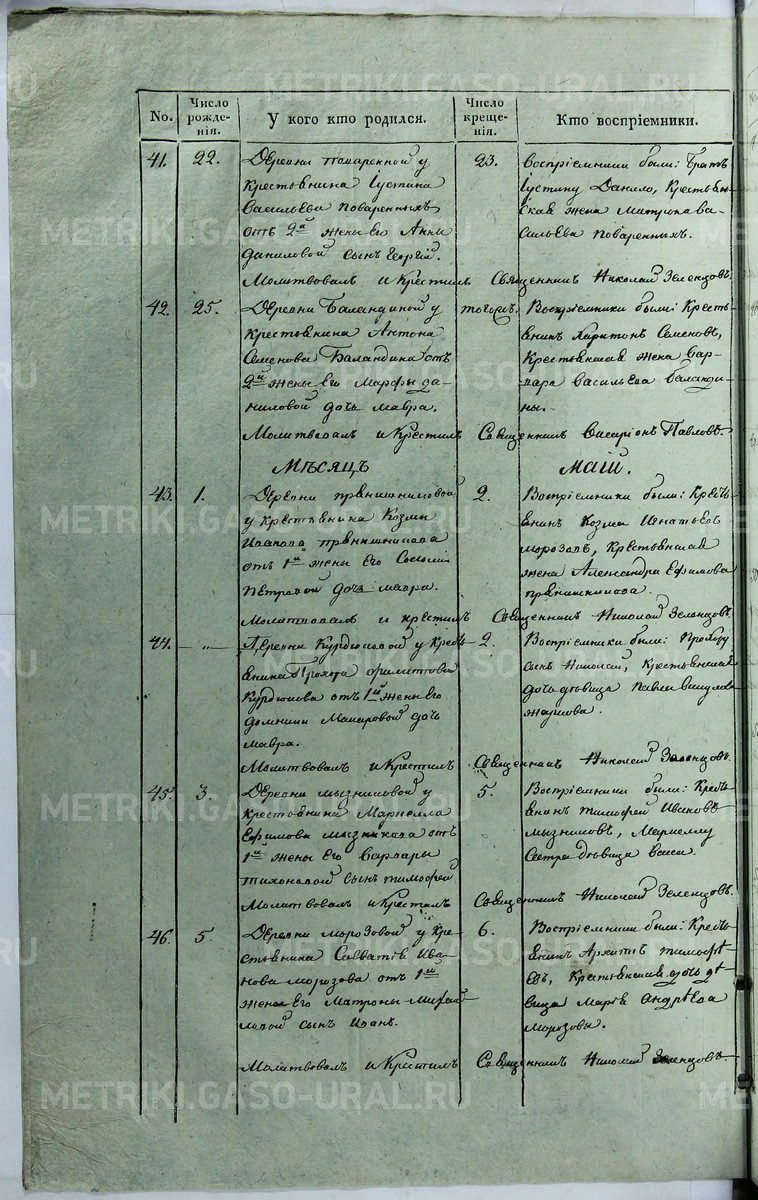 No.
Число рожде-нія.
У кого кто родился.
Число креще-нія.
Кто воспріемники.
41. 22.
Деревни Поваренной у
крестьянина Іустина
Васильева Поваренныхъ
отъ 2й жены его Анны
Даниловой сынъ Георгій.
23.
Воспріемники были: Братъ
Іустину Данило, крестьян-
ская жена Матрона Ва-
сильева Поваренныхъ.
Молитвовалъ и крестилъ Священникъ Николай Зеленцовъ.
42. 25.
Деревни Баландиной у
крестьянина Антона
Семенова Баландина отъ
2й жены его Марфы Да-
ниловой дочь Мавра.
тогожъ.
Воспріемники были: Кресть-
янинъ Харитонъ Семеновъ,
крестьянская жена Вар-
вара Васильева Баланди-
ны.
Молитвовалъ и крестилъ Священникъ Висаріонъ Павловъ.
Мѣсяцъ Маій.
43. 1.
Деревни Прянишниковой
у крестьянина Козмы
Ивановa Прянишникова
отъ 1й жены его
Петровой дочь Мавра.
2.
Воспріемники были: Кресть-
янинъ Козма Игнатьевъ
Морозовъ, крестьянская
жена Александра Ефимова
Прянишникова.
Молитвовалъ и крестилъ Священникъ Николай Зеленцовъ.
44. —"—
Деревни Курдюковой у кресть-
янина Прохора Филиппова
Курдюкова отъ 1й жены его
Домники Макаровой дочь
Мавра.
2.
Воспріемники были: Прохору
сынъ Николай, крестьянская
дочь дѣвица Павла
Молитвовалъ и крестилъ Священникъ Николай Зеленцовъ.
45. 3.
Деревни Мызниковой у
крестьянина Маркелла
Ефимова Мызникова отъ
1й жены его Варвары
Тихоновой сынъ Тимофей
5.
Воспріемники были: Кресть-
янинъ Тимофей Ивановъ
Мызниковъ, Маркеллу
сестра дѣвица
Молитвовалъ и крестилъ Священникъ Николай Зеленцовъ.
46. 5.
Деревни Морозовой у кре-
стьянина Савватія Ива-
нова Морозова отъ 1й
жены его Матроны Михай-
ловой сынъ Иванъ.
6.
Воспріемники были: Кресть-
янинъ Архипъ Тимофѣ-
евъ, крестьянская дочь дѣ-
вица Марія Андрѣева
Морозовы.
Молитвовалъ и крестилъ Священникъ Николай Зеленцовъ.
METRIKI.GASO-URAL.RU